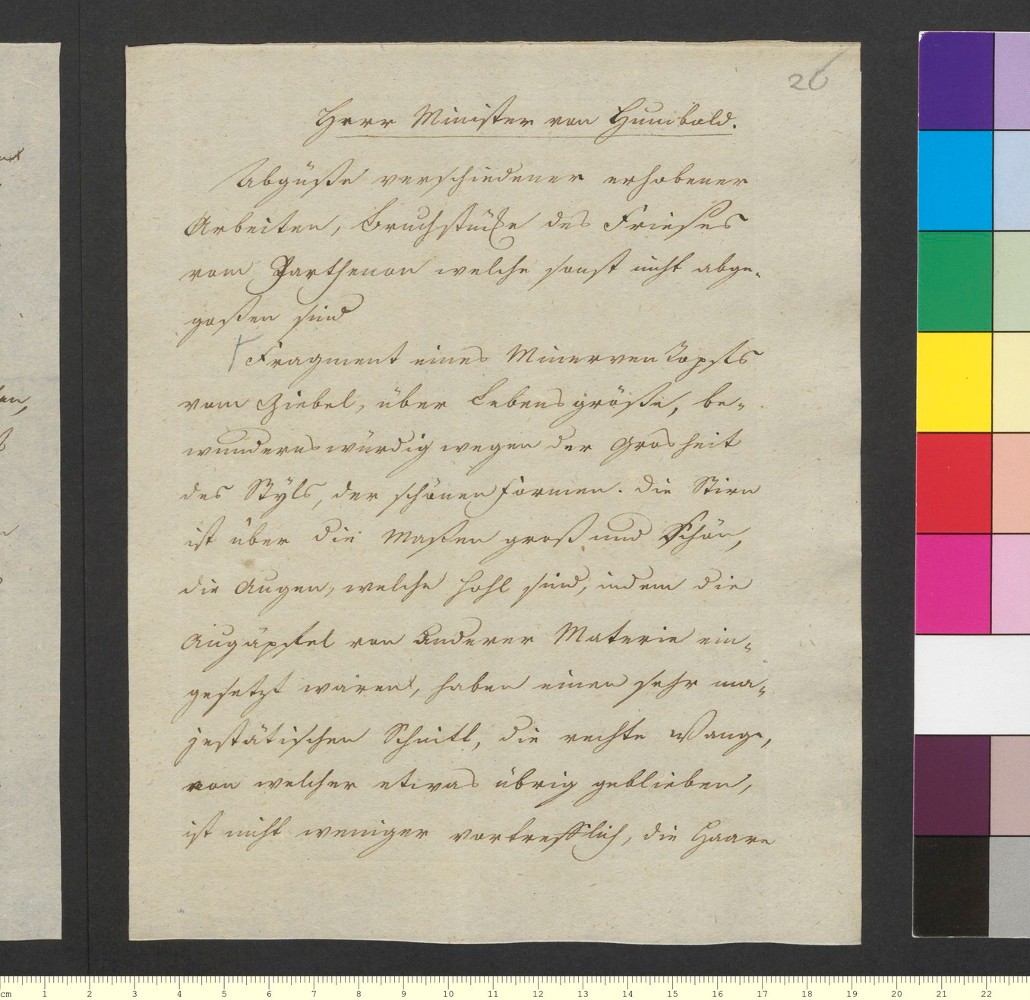 26
Herr Minister von Humbold.
Abgüße verschiedener erhobener
Arbeiten, Bruchstücke des Frieses
vom Parthenon welche sonst nicht abge-
goßen sind
Fragment eines Minervenkopfs
vom Giebel, über Lebensgröße, be-
wundernswürdig wegen der Grosheit
des Styls, der schönen Formen. Die Stirn
ist über die Maßen groß und schön,
die Augen, welche hohl sind, indem die
Augäpfel von anderer Materie ein-
gesetzt waren, haben einen sehr ma-
jestätischen Schnitt, die rechte Wange,
von welcher etwas übrig geblieben,
ist nicht weniger vortrefflich, die Haare
en,
cm 1 2 3 4 5 6 7 8 9 10 11 12 13 14 15 16 17 18 19 20 21 22